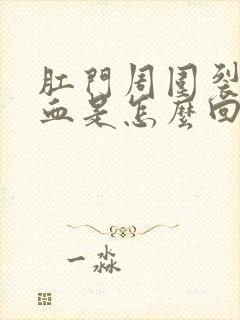 肛門周圍裂
血是怎麼回
一淼